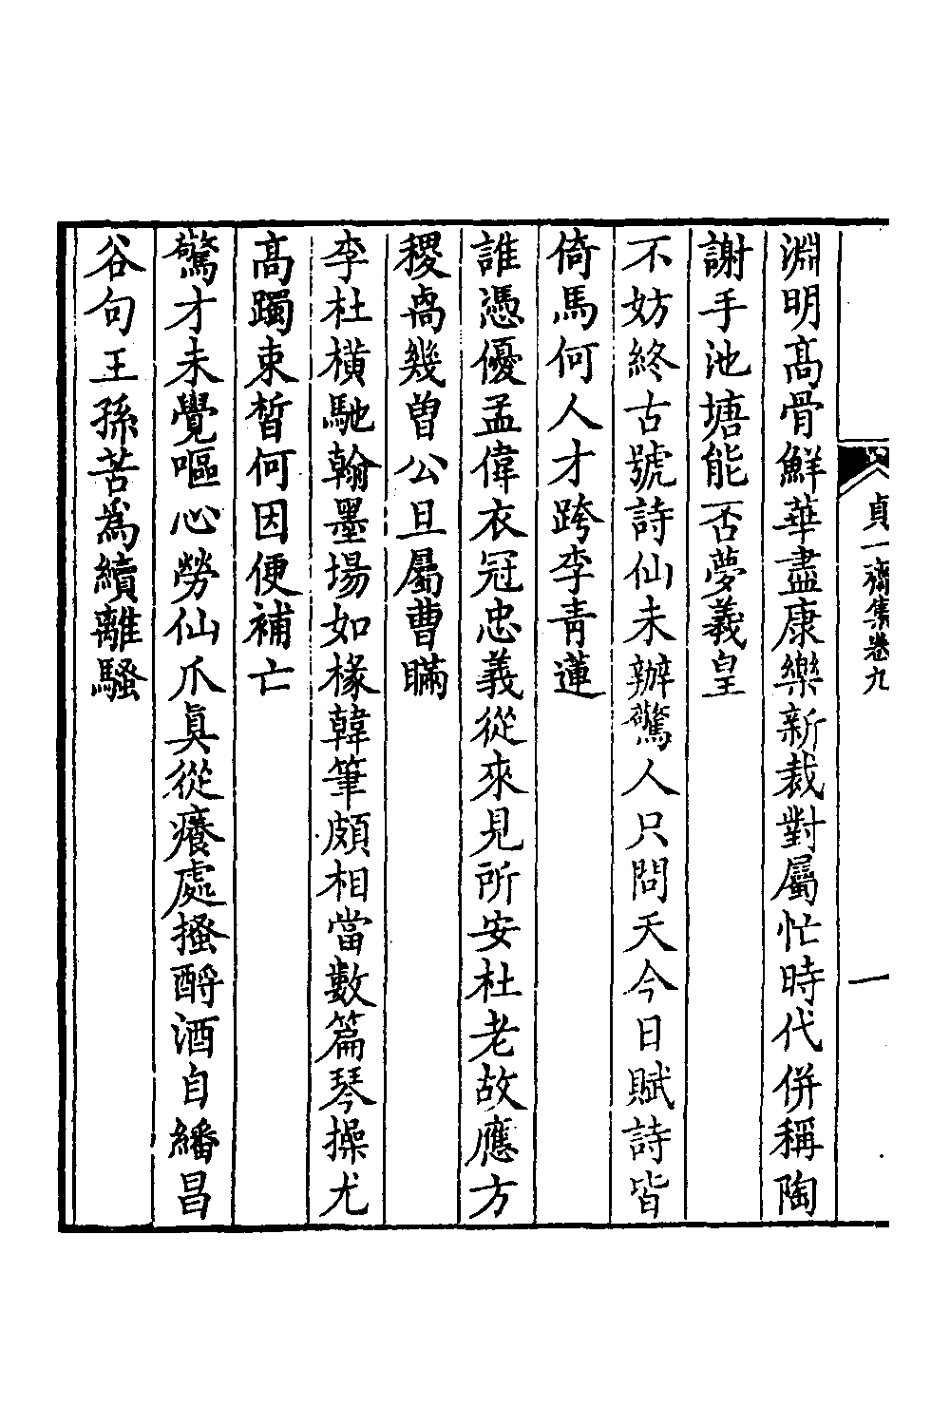 貞一齋集卷九
一
淵明高骨鮮華盡康樂新裁對屬忙時代併稱陶
謝手池塘能否夢羲皇
不妨終古號詩仙未辦驚人只問天今日賦詩皆
倚馬何人才跨李青蓮
誰憑優孟偉衣冠忠義從來見所安杜老故應方
稷卨幾曾公旦屬曹瞞
李杜橫馳翰墨場如椽韓筆頗相當數篇琴操尤
高躅束晳何因便補亡
驚才未覺嘔心勞仙爪真從癢處搔酹酒自繙昌
谷句王孫苦為續離騷